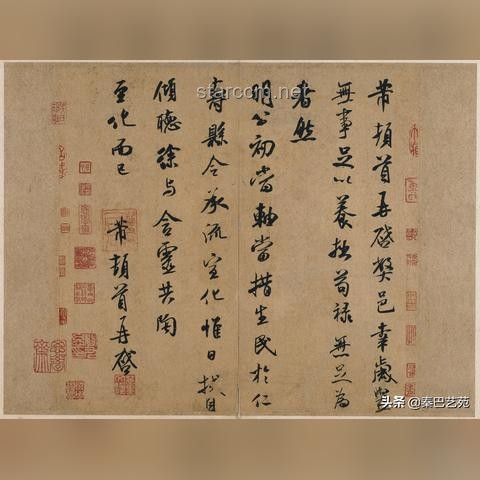 芾頓首再啓弊邑幸歲豐
無事足以養拙苟祿無足為
者然
明公初當軸當措生民於仁
壽縣令承流宣化惟日拭目
傾聽徐與含靈共陶
至化而已 芾頓首再啓
starcom.net
头条 @秦巴艺苑